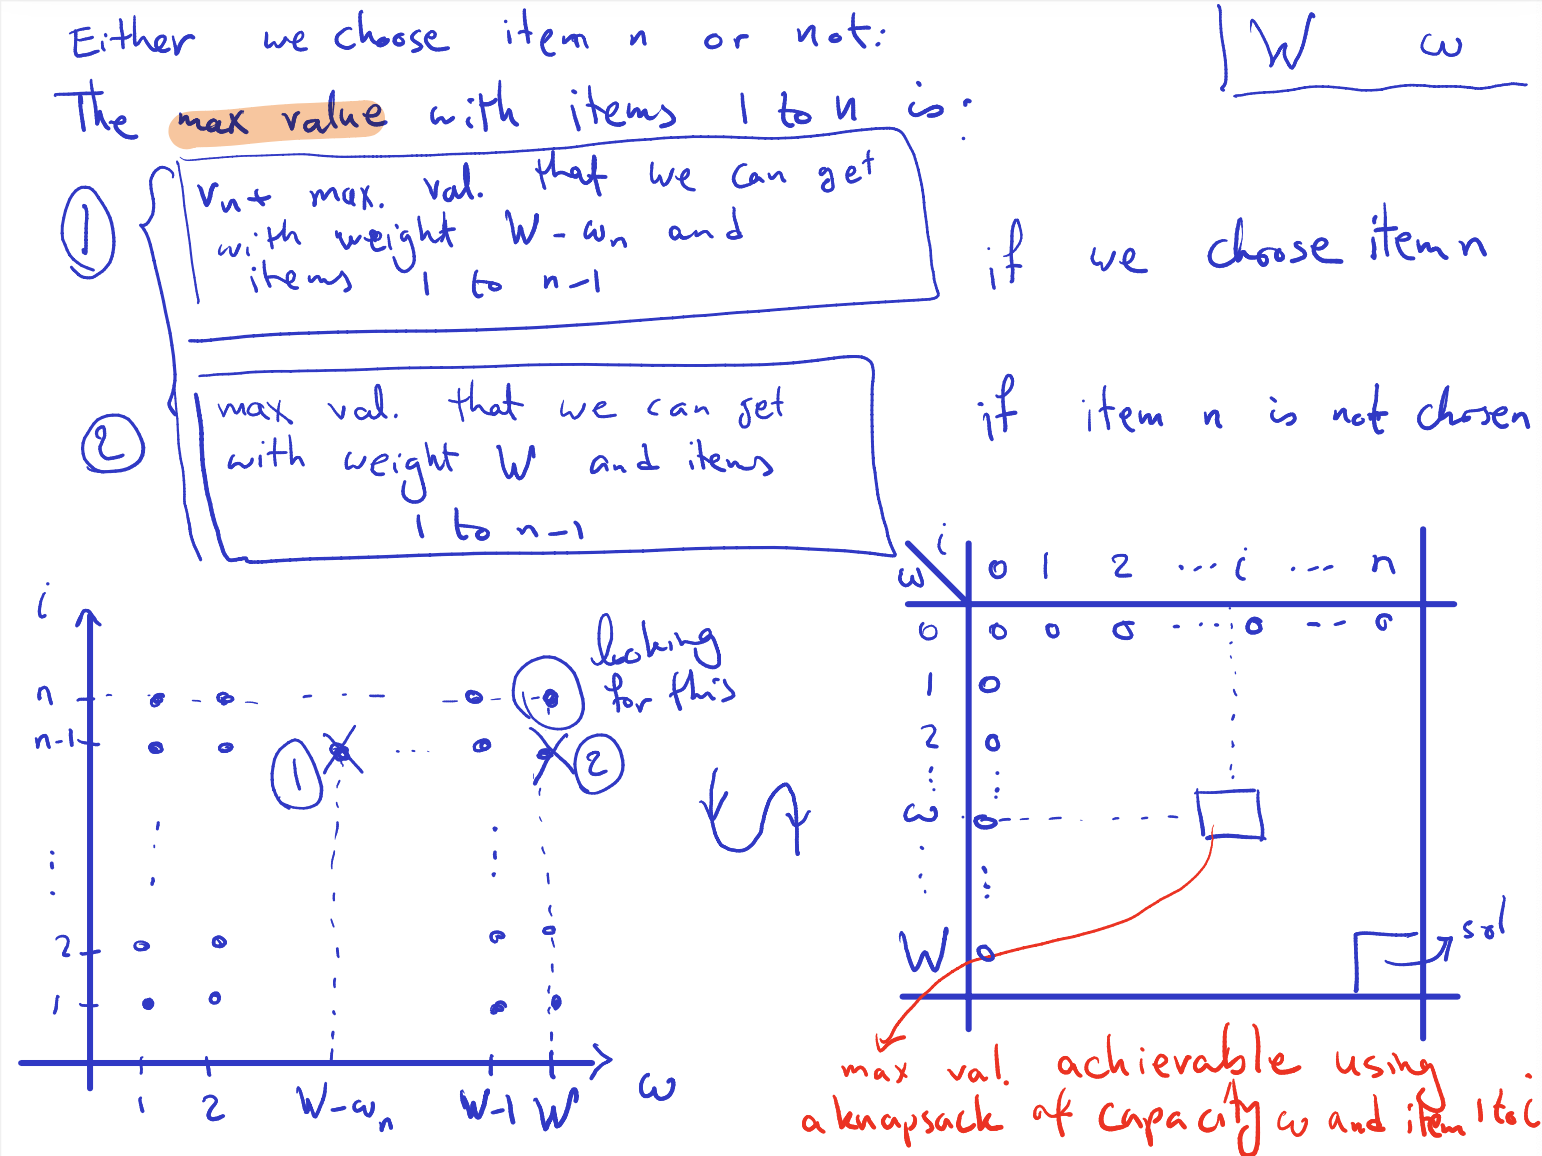 Either we choose item n or not:
W ω
The max value with items 1 to n is:
① vn + max. val. that we can get
with weight W - ωn and
items 1 to n-1
if we choose item n
② max val. that we can get
with weight W and items
1 to n-1
if item n is not chosen
i
n
n-1
⋮
2
1
looking
for this
① ... ②
1 2 W-ωn W-1 W ω
i
ω 0 1 2 ... i ... n
0 0 0 0 ... 0 -- 0
1 0
2 0
⋮ ⋮
ω 0
⋮ ⋮
W 0
sol
max val. achievable using
a knapsack of capacity ω and item 1 to i